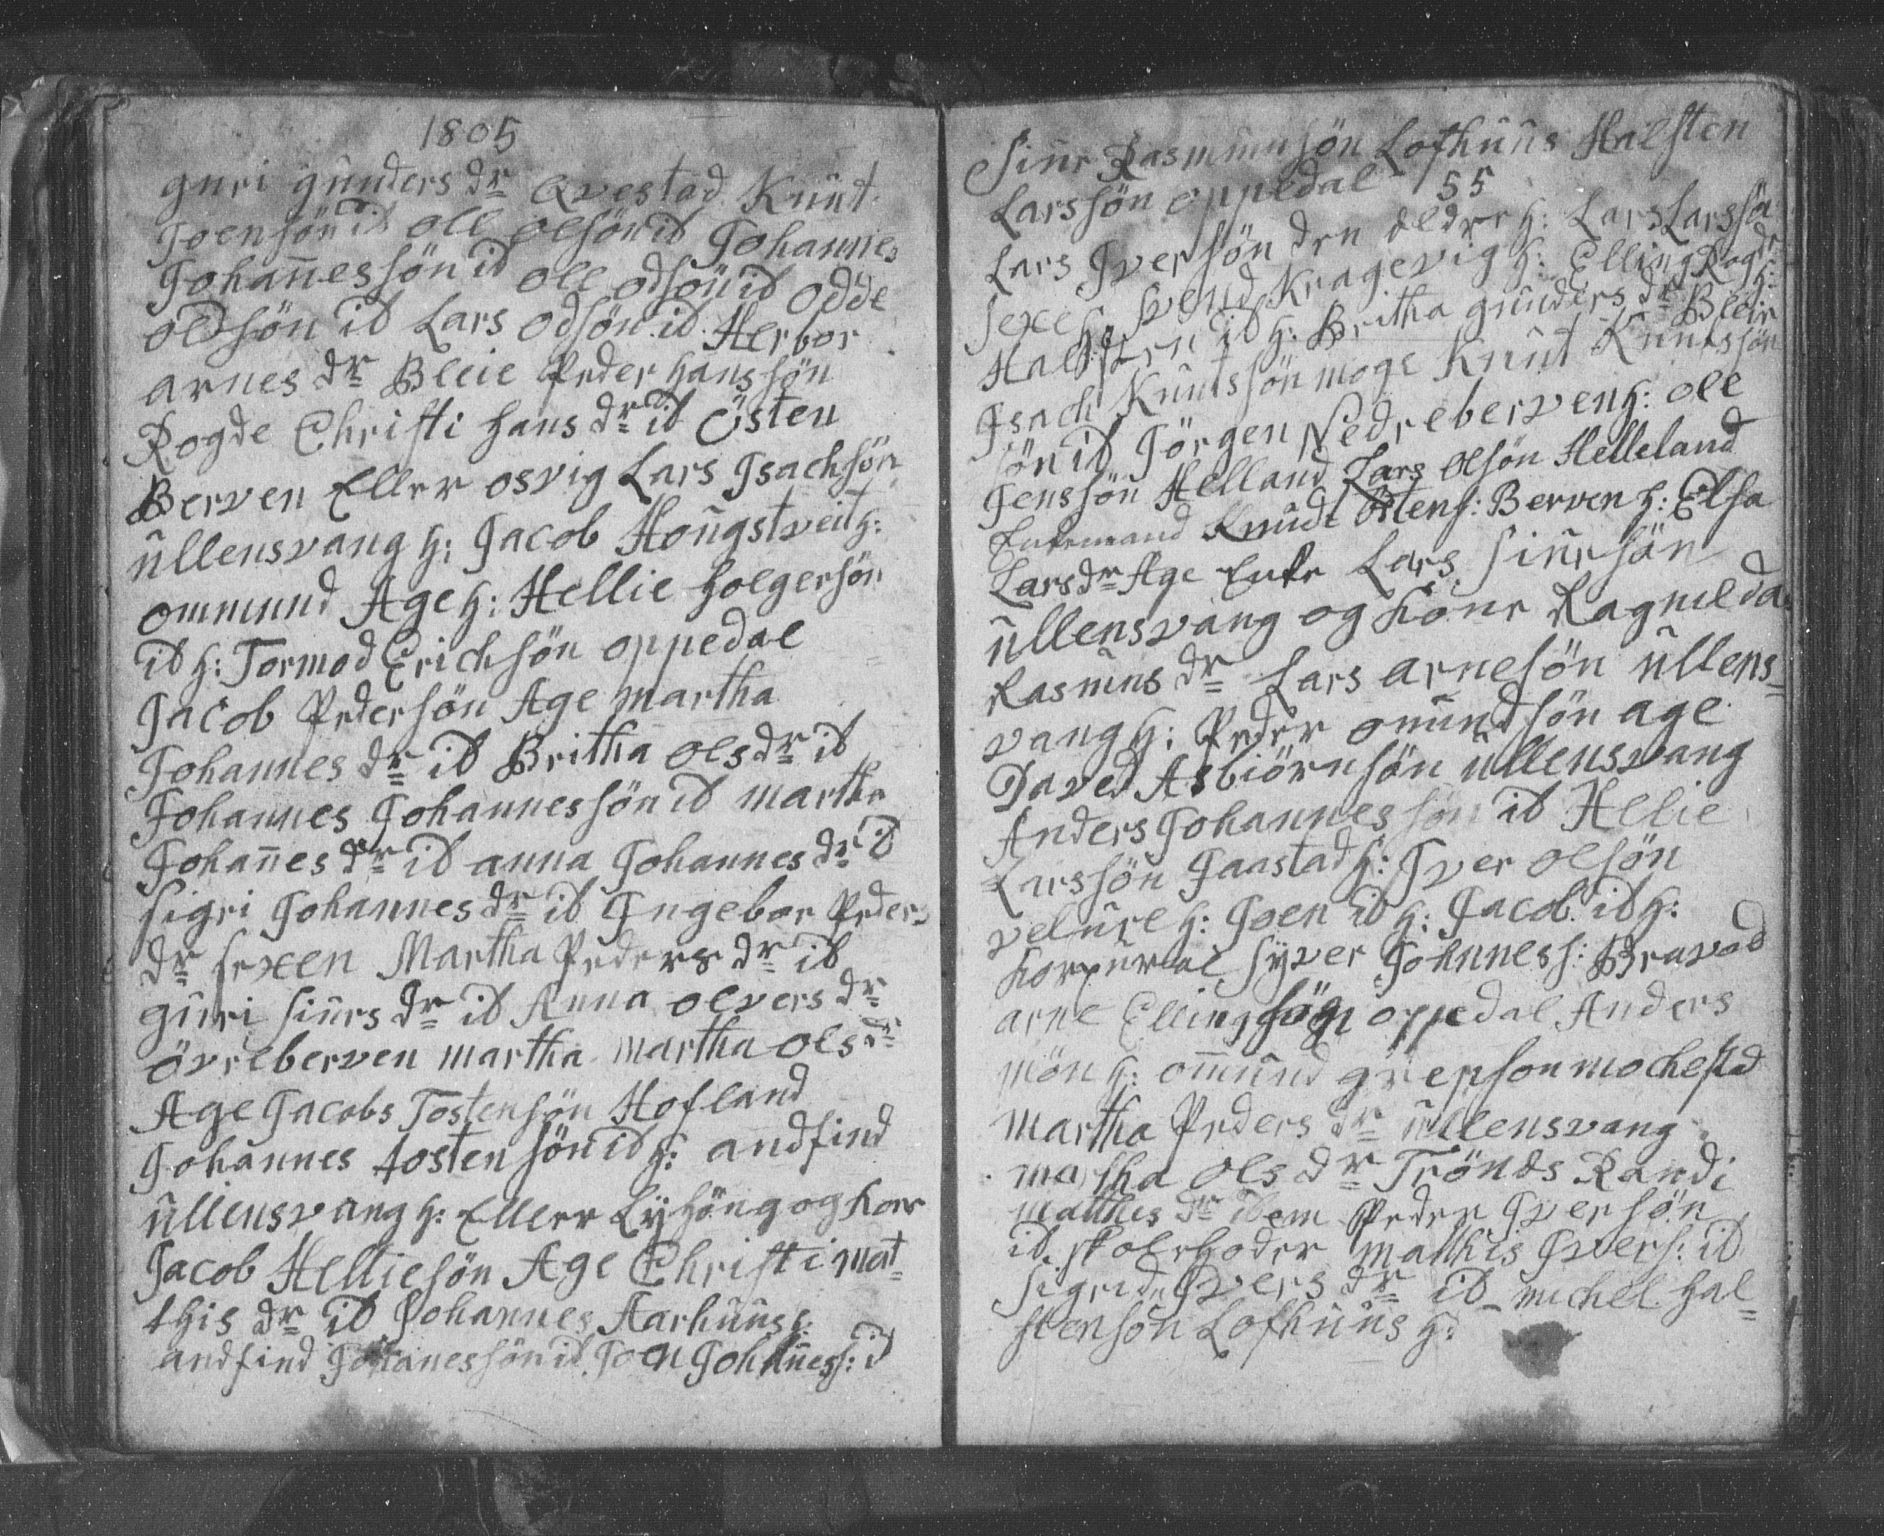 1805
guri gunders dr Qvestad Knut
Joensön id ole olsön id Johannes
Johannessön id ole odsön id odde
oldsön id Lars odsön id Herbor
arnes dr Bleie Peder hanssön
Rogde Christi hans dr id Östen
Berven Eller osvig Lars Isachsön
ullensvang h: Jacob Hougstveit h:
ommund Age h: Hellie holgersön
id h: Tormod Erichsön oppedal
Jacob Pedersön Age martha
Johannes dr id Britha ols dr id
Johannes Johannessön id marthe
Johannes dr id anna Johannes dr id
sigri Johannes dr id Ingebor Peders
dr sexen Martha Peders dr id
guri siurs dr id Anna olvers dr
övreberven martha martha ols dr
Age Jacobs Tostensön Hofland
Johannes tostensön id h: andfind
ullensvang h: Eller Lÿhöng og kone
Jacob Helliesön Age Christi mat=
this dr id Johannes Aarhuus h:
andfind Johanessön id Joen Johaness: id
Siur Rasmunsön Lofthuus Halsten
Larssön oppedal 55
Lars Iversön den eldre h: Lars Larssön
sexe h: Svend Kragevig h: Elling Rogde
Halsten id h: Britha gunders dr Bleie h:
Isach Knutsön moge Knut Knutssön
sön id Jörgen Nedreberven h: ole
Jenssön Helland Lars olsön Helleland
Enkemand Knudt Östens: Berven h: Elsa
Lars dr Age Enke Lars siursön
ullensvang og kone Ragnilda
Rasmus dr Lars arnesön ullens=
vang h: Peder omundsön age
David Asbiörnsön ullensvang
Anders Johannessön id Hellie
Larssön Jaastad h: Iver olsön
velure h: Joen id h: Jacob id h:
korpural syver Johness: Bravod
arne Ellingsön oppedal Anders
mön h: omund grepson mochestd
Martha Peders dr ullensvang
martha ols dr Trönds Randi
matthis dr idem Peder Iversön
id skolehoder Mathis Ivers: id
sigrid Ivers dr id michel hal=
stensön Lofthuus h: